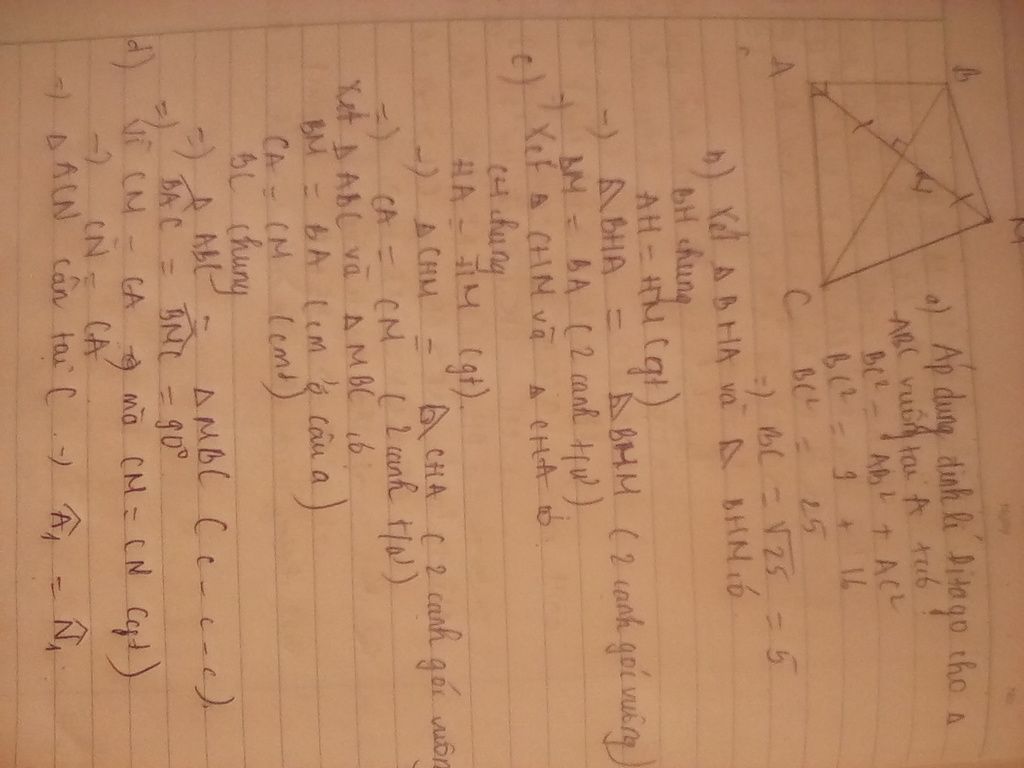 B
A
C
H
M
a) Áp dụng định lí Pitago cho Δ
ABC vuông tại A ta có
BC² = AB² + AC²
BC² = 9 + 16
BC² = 25
=) BC = √25 = 5
b) Xét Δ BHA và Δ BHM có
BH chung
AH = HM (gt)
=) Δ BHA = Δ BHM ( 2 cạnh góc vuông)
=) BM = BA ( 2 cạnh t/ư)
c) Xét Δ CHM và Δ CHA có
CH chung
HA = HM (gt)
=) Δ CHM = Δ CHA ( 2 cạnh góc vuông
=) CA = CM ( 2 cạnh t/ư)
Xét Δ ABC và Δ MBC có
BM = BA ( cm ở câu a)
CA = CM (cmt)
BC chung
=) Δ ABC = Δ MBC ( c - c - c)
=) BAC = BMC = 90°
d) Vì CM = CA mà CM = CN (gt)
=) CN = CA
=) Δ ACN cân tại C =) A₁ = N₁